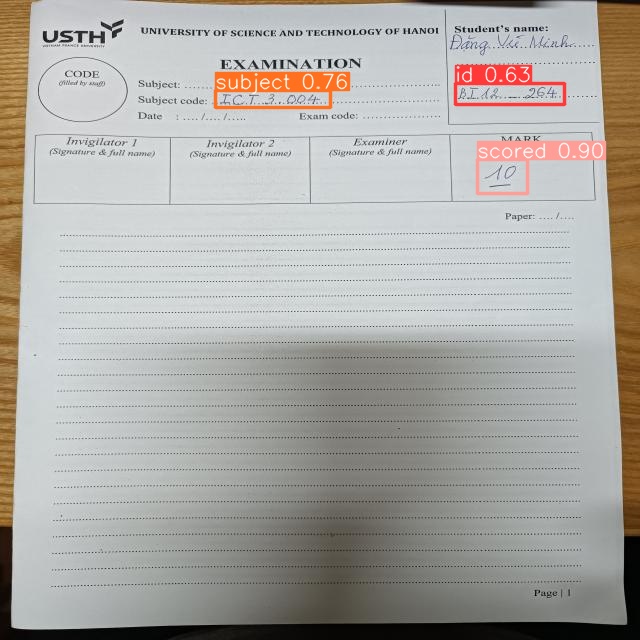 USTH
VIETNAM FRANCE UNIVERSITY
UNIVERSITY OF SCIENCE AND TECHNOLOGY OF HANOI
Student's name:
Đặng Vũ Minh
EXAMINATION
CODE
(filled by staff)
Subject: ......
subject 0.76
Subject code: I.C.T...3...004...
id 0.63
BI12...264
Date : ..../..../..... Exam code: ......................
Invigilator 1
(Signature & full name)
Invigilator 2
(Signature & full name)
Examiner
(Signature & full name)
MARK
scored 0.90
10
Paper: ..../....
Page | 1